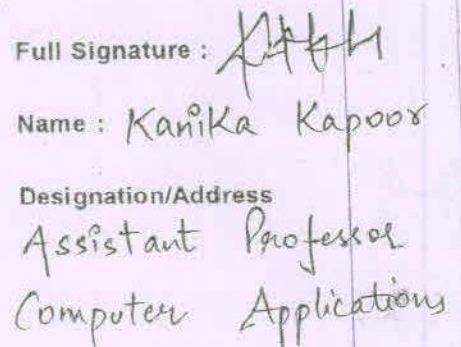 Full Signature :
Name : Kanika Kapoor
Designation/Address
Assistant Professor
Computer Applications